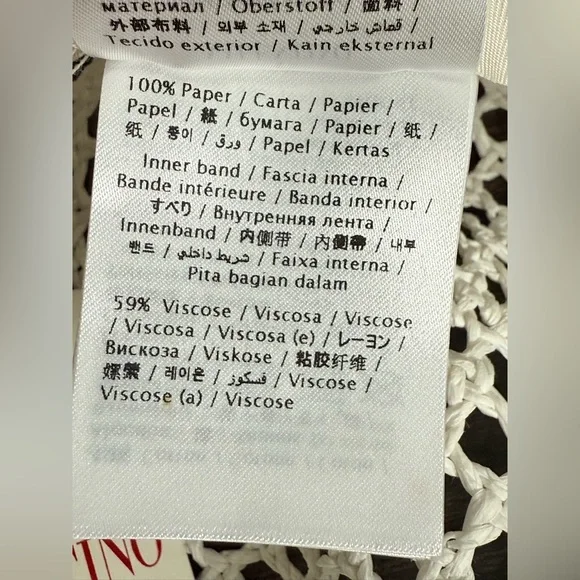 материал / Oberstoff / 面料 /
外部布料 / 외부 소재 / قماش خارجي /
Tecido exterior / Kain eksternal
100% Paper / Carta / Papier /
Papel / 紙 / бумага / Papier / 纸 /
纸 / 종이 / ورق / Papel / Kertas
Inner band / Fascia interna /
Bande intérieure / Banda interior /
すべり / Внутренняя лента /
Innenband / 内侧带 / 內側帶 / 내부
밴드 / شريط داخلي / Faixa interna /
Pita bagian dalam
59% Viscose / Viscosa / Viscose
/ Viscosa / Viscosa (e) / レーヨン /
Вискоза / Viskose / 粘胶纤维 /
嫘縈 / 레이온 / فسكوز / Viscose /
Viscose (a) / Viscose